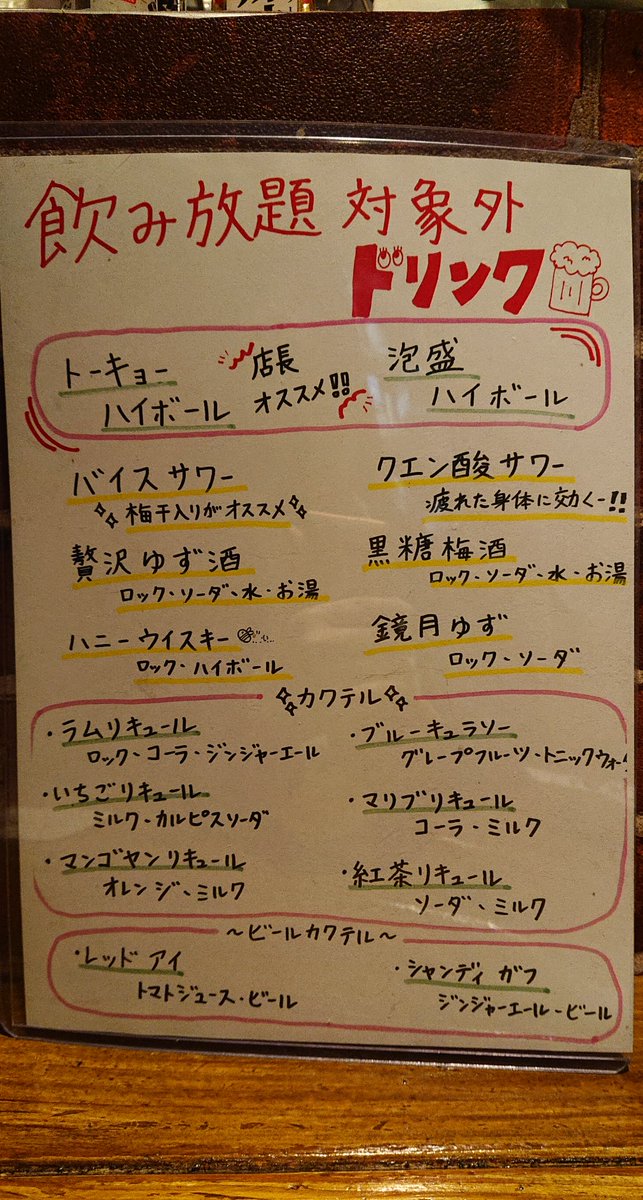 飲み放題 対象外
ドリンク
トーキョー
ハイボール
店長
オススメ!!
泡盛
ハイボール
バイスサワー
梅干入りがオススメ
クエン酸サワー
疲れた身体に効くー!!
贅沢ゆず酒
ロック・ソーダ・水・お湯
黒糖梅酒
ロック・ソーダ・水・お湯
ハニーウイスキー
ロック・ハイボール
鏡月ゆず
ロック・ソーダ
カクテル
・ラムリキュール
ロック・コーラ・ジンジャーエール
・ブルーキュラソー
グレープフルーツ・トニックウォー
・いちごリキュール
ミルク・カルピスソーダ
・マリブリキュール
コーラ・ミルク
・マンゴヤンリキュール
オレンジ・ミルク
・紅茶リキュール
ソーダ・ミルク
～ビールカクテル～
・レッド アイ
トマトジュース・ビール
・シャンディ ガフ
ジンジャーエール・ビール